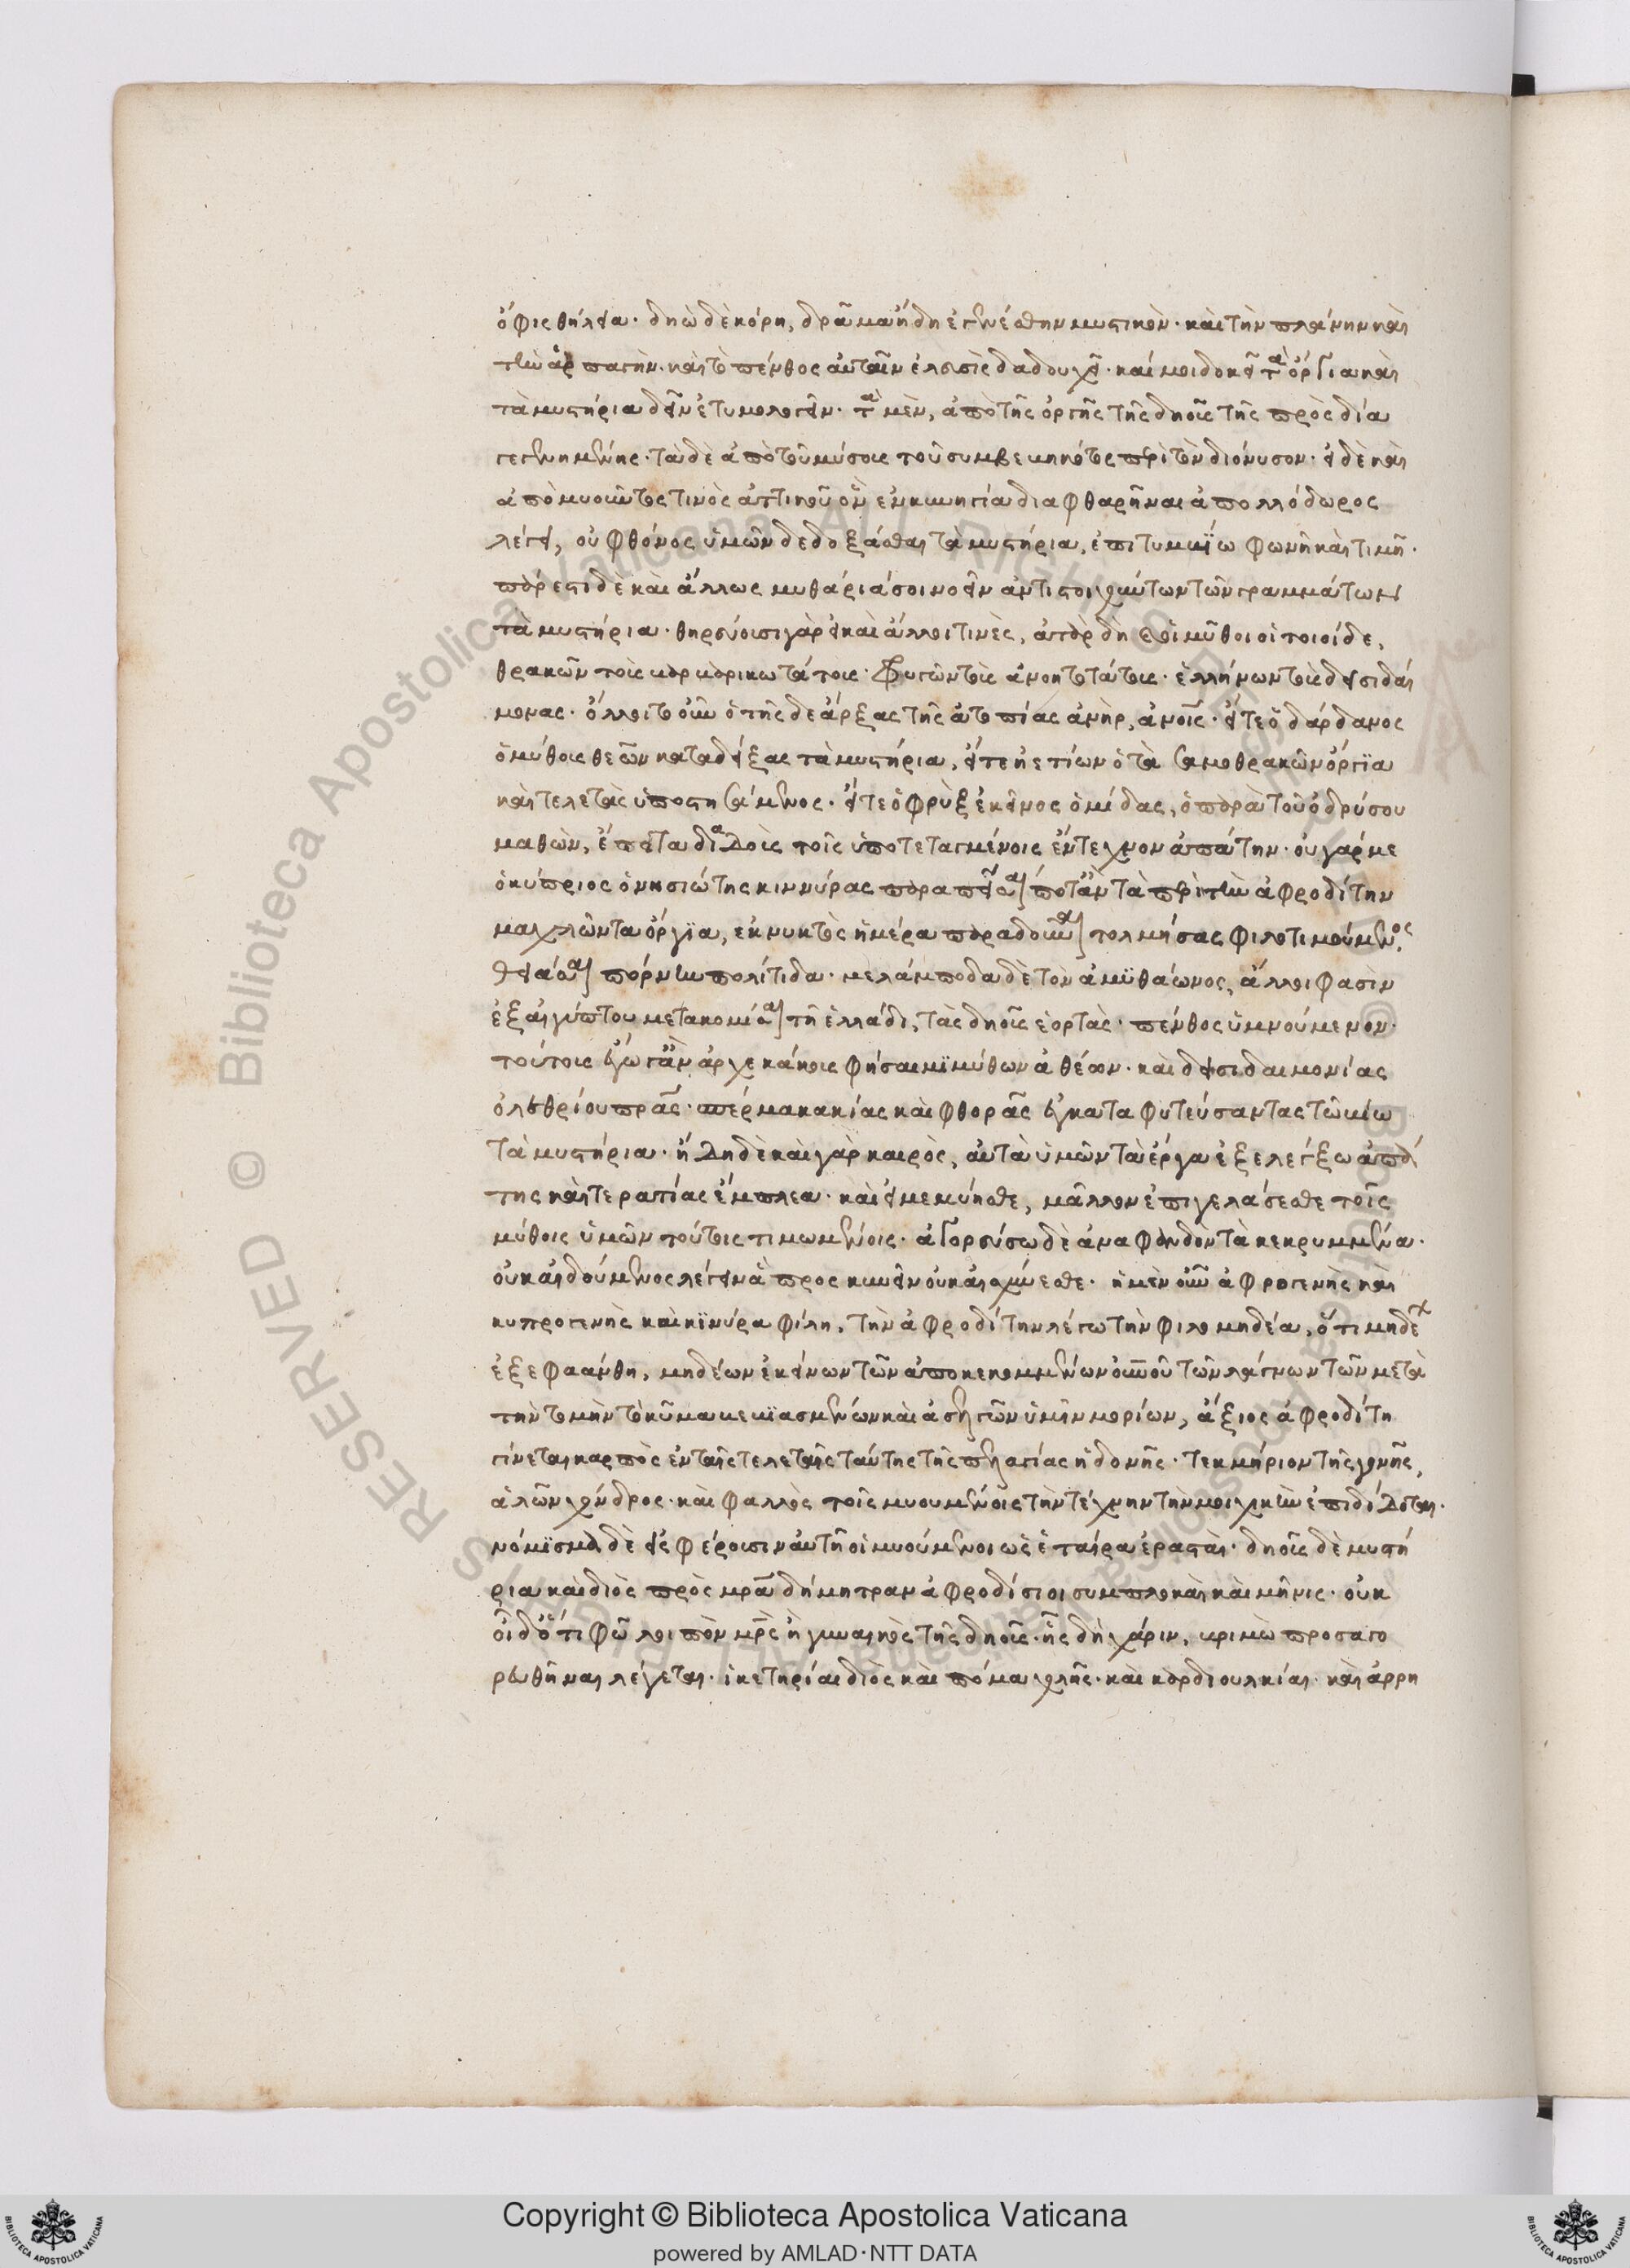 ὄφις θήλεια· δηὼ δὲ κόρη, δρᾶμα ἤδη ἐγενέσθην μυστικὸν· καὶ τὴν πλάνην καὶ
τὴν ἁρπαγὴν· καὶ τὸ πένθος αὐταῖν ἐλευσὶς δᾳδουχεῖ· καί μοι δοκεῖ τὰ ὄργια καὶ
τὰ μυστήρια δεῖν ἐτυμολογεῖν· τὰ μὲν, ἀπὸ τῆς ὀργῆς τῆς δηοῦς τῆς πρὸς δία
γεγενημένης· τὰ δὲ ἀπὸ τοῦ μύσους τοῦ συμβεκηκότος περὶ τὸν διόνυσον· εἰ δὲ καὶ
ἀπὸ μυοῦντος τινὸς ἀττικοῦ ὃν ἐν κυνηγία διαφθαρῆναι ἀπολλόδωρος
λέγει, οὐ φθόνος ὑμῶν δεδοξάσθαι τὰ μυστήρια, ἐπιτυμβίω φωνῆ καὶ τιμῆ·
πάρεστι δὲ καὶ ἄλλως μυθάριά σοι νοεῖν ἀντιστοιχούντων τῶν γραμμάτων
τὰ μυστήρια· θηρεύουσι γὰρ εἰ καὶ ἄλλοι τινὲς, ἀτὰρ δὴ οἱ μῦθοι οἱ τοιοίδε,
θρακῶν τοὺς βαρβαρικωτάτους· φρυγῶν τοὺς ἀνοητοτάτους· ἑλλήνων τοὺς δεισιδαί
μονας· ὄλοιτο οὖν ὁ τῆς δε ἄρξας τῆς ἀτοπίας ἀνὴρ, ἀνοῖς· εἴτε ὁ δάρδανος
ὁ μύθους θεῶν καταδείξας τὰ μυστήρια, εἴτε ἠετίων ὁ τὰ σαμοθρακῶν ὄργια
καὶ τελετὰς ὑποστησάμενος· εἴτε ὁ φρὺξ ἐκεῖνος ὁ μίδας, ὁ παρὰ τοῦ ὀδρύσου
μαθὼν, ἔπειτα διαδοὺς τοῖς ὑποτεταγμένοις ἔντεχνον ἀπάτην· οὐ γάρ με
ὁ κύπριος ὁ νησιώτης κιννύρας παραπείσαι ποτ' ἂν τὰ περὶ τὴν ἀφροδίτην
μαχλῶντα ὄργια, ἐκ νυκτὸς ἡμέρα παραδοῦναι τολμήσας φιλοτιμούμενος
θειάσαι πόρνην πολίτιδα· μελάμποδα δὲ τὸν ἀμυθάωνος, ἄλλοι φασὶν
ἐξ αἰγύπτου μετακομίσαι τῆ ἑλλάδι, τὰς δηοῦς ἑορτὰς· πένθος ὑμνούμενον·
τούτους ἔγωγ' ἂν ἀρχεκάκους φήσαιμι μύθων ἀθέων· καὶ δεισιδαιμονίας
ὀλεθρίου πρας· σπέρμα κακίας καὶ φθορᾶς ἐγκαταφυτεύσαντας τῶ βίω
τὰ μυστήρια· ἤδη δὲ καὶ γὰρ καιρὸς, αὐτὰ ὑμῶν τὰ ἔργα ἐξελέγξω ἀπά
της καὶ τερατίας ἔμπλεα· καὶ εἰ μεμύησθε, μᾶλλον ἐπιγελάσεσθε τοῖς
μύθοις ὑμῶν τούτοις τιμωμένοις· ἀγορεύσω δὲ ἀναφανδὸν τὰ κεκρυμμένα·
οὐκ αἰδούμενος λέγειν ἃ προσκυνεῖν οὐκ αἰσχύνεσθε· ἡ μὲν οὖν ἀφρογενὴς καὶ
κυπρογενὴς καὶ κινύρα φίλη, τὴν ἀφροδίτην λέγω τὴν φιλομηδέα, ὅτι μηδε
ἐξεφαάνθη, μηδέων ἐκείνων τῶν ἀποκεκομμένων οὐρανοῦ τῶν λάγνων τῶν μετὰ
τὴν τομὴν τὸ κῦμα βεβιασμένων καὶ ἀσελγῶν ὑμῖν μορίων, ἄξιος ἀφροδίτη
γίνεται καρπὸς ἐν ταῖς τελεταῖς ταύτης τῆς πελαγίας ἡδονῆς· τεκμήριον τῆς γονῆς,
ἁλῶν χόνδρος· καὶ φαλλὸς τοῖς μυουμένοις τὴν τέχνην τὴν μοιχικὴν ἐπιδίδοται·
νόμισμα δὲ εἰσφέρουσιν αὐτῆ οἱ μυούμενοι ὡς ἑταίρα ἐρασταὶ· δηοῦς δὲ μυστή
ρια καὶ διὸς πρὸς μρα δήμητραν ἀφροδίσιοι συμπλοκαὶ καὶ μῆνις· οὐκ
οἶδ' ὅ τι φῶ λοιπὸν μρς ἢ γυναικὸς τῆς δηοῦς· ἧς δὴ χάριν, βριμὼ προσαγο
ρευθῆναι λέγεται· ἱκετηρίαι διὸς καὶ πόμα χολῆς· καὶ καρδιουλκίαι· καὶ ἀρρη